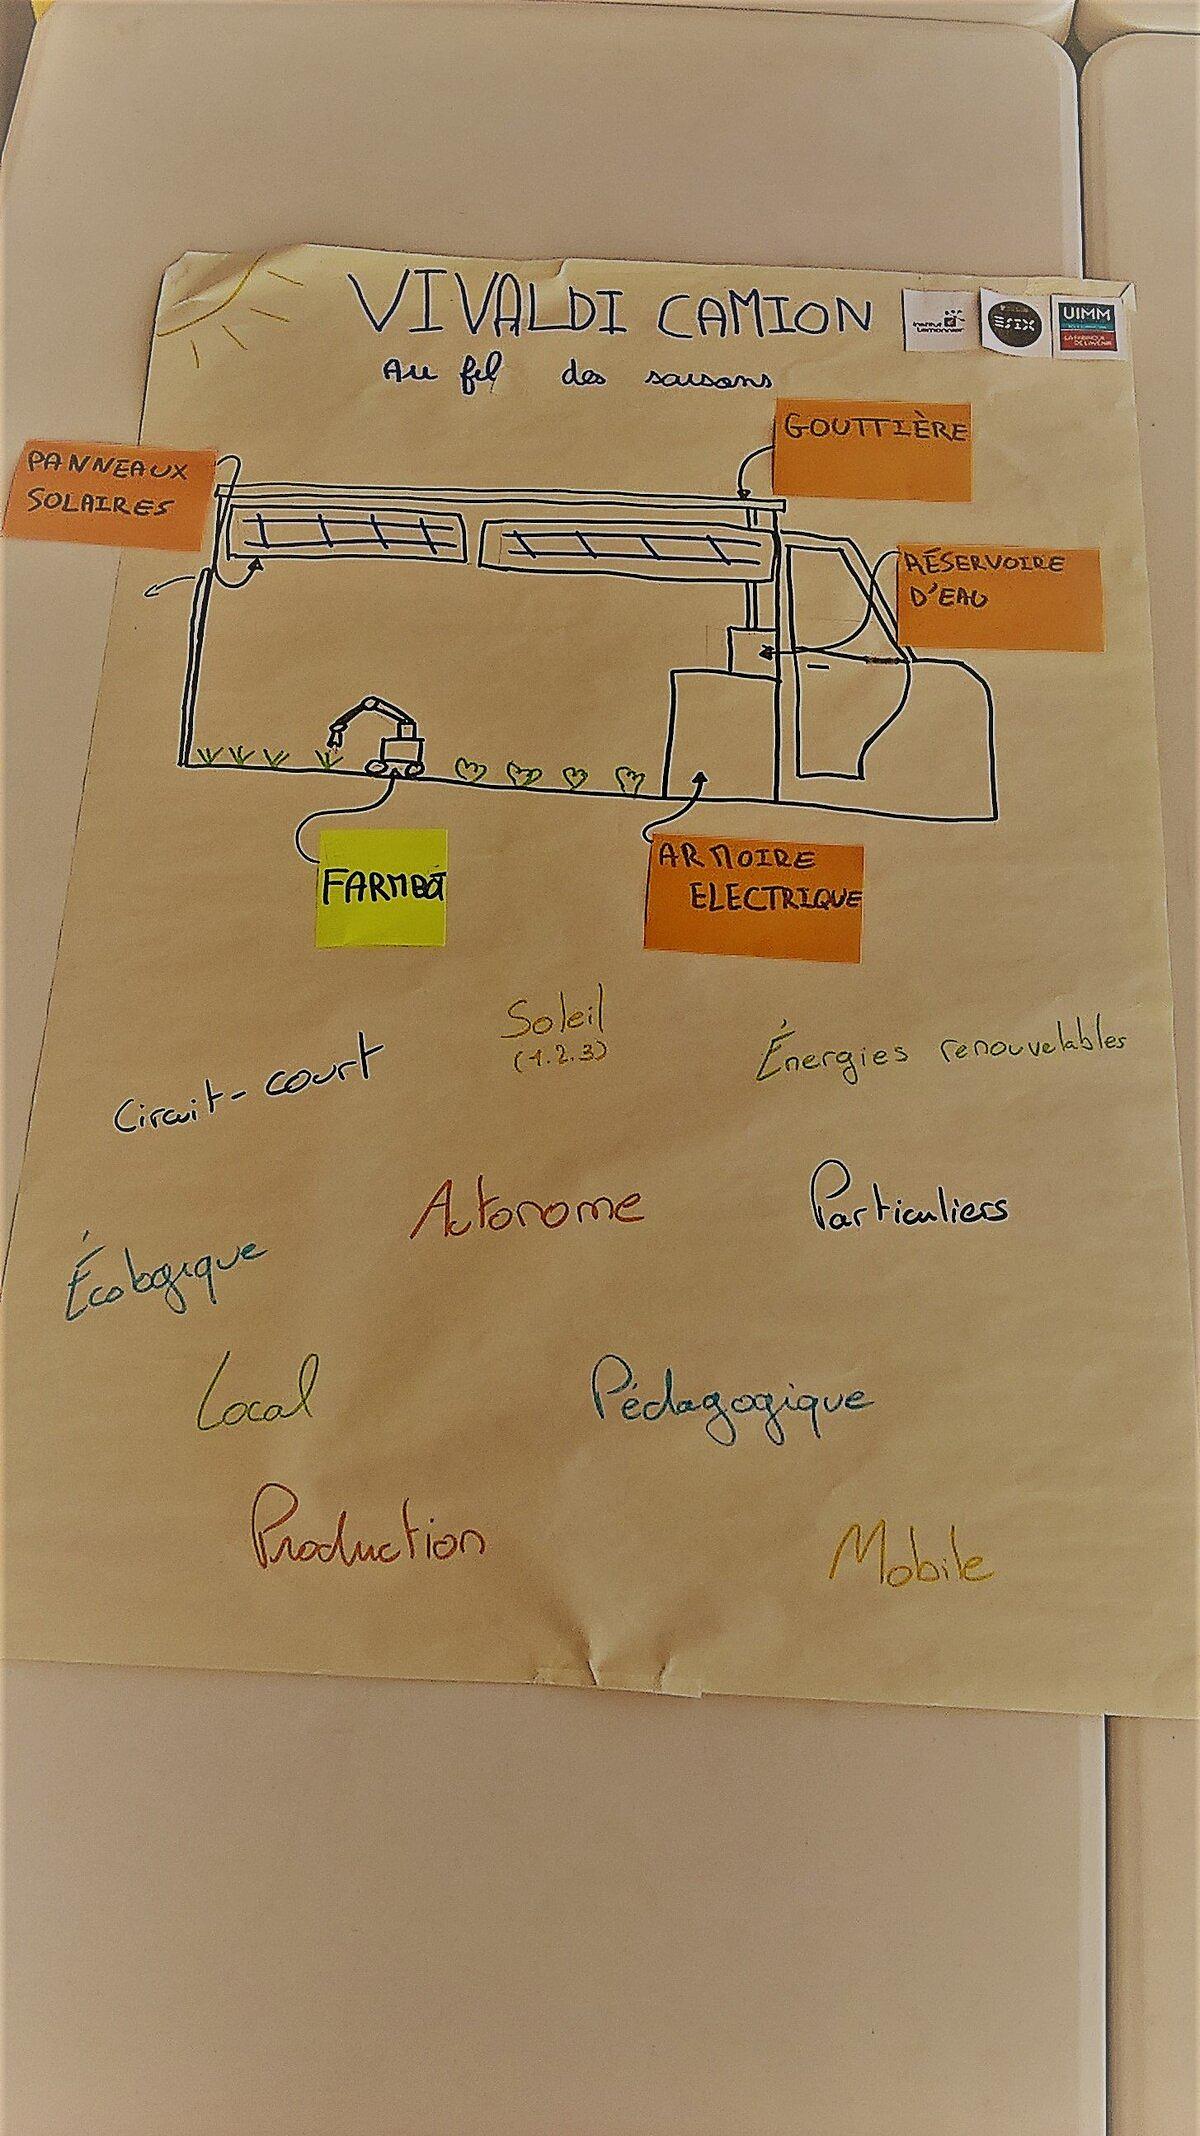 VIVALDI CAMION
Au fil des saisons
Institut
Lemonnier
ESIX
UIMM
LA FABRIQUE
DE L'AVENIR
GOUTTIÈRE
PANNEAUX
SOLAIRES
RÉSERVOIRE
D'EAU
FARMBOT
ARMOIRE
ELECTRIQUE
Soleil
(1.2.3)
Énergies renouvelables
Circuit-court
Autonome
Particuliers
Écologique
Local
Pédagogique
Production
Mobile